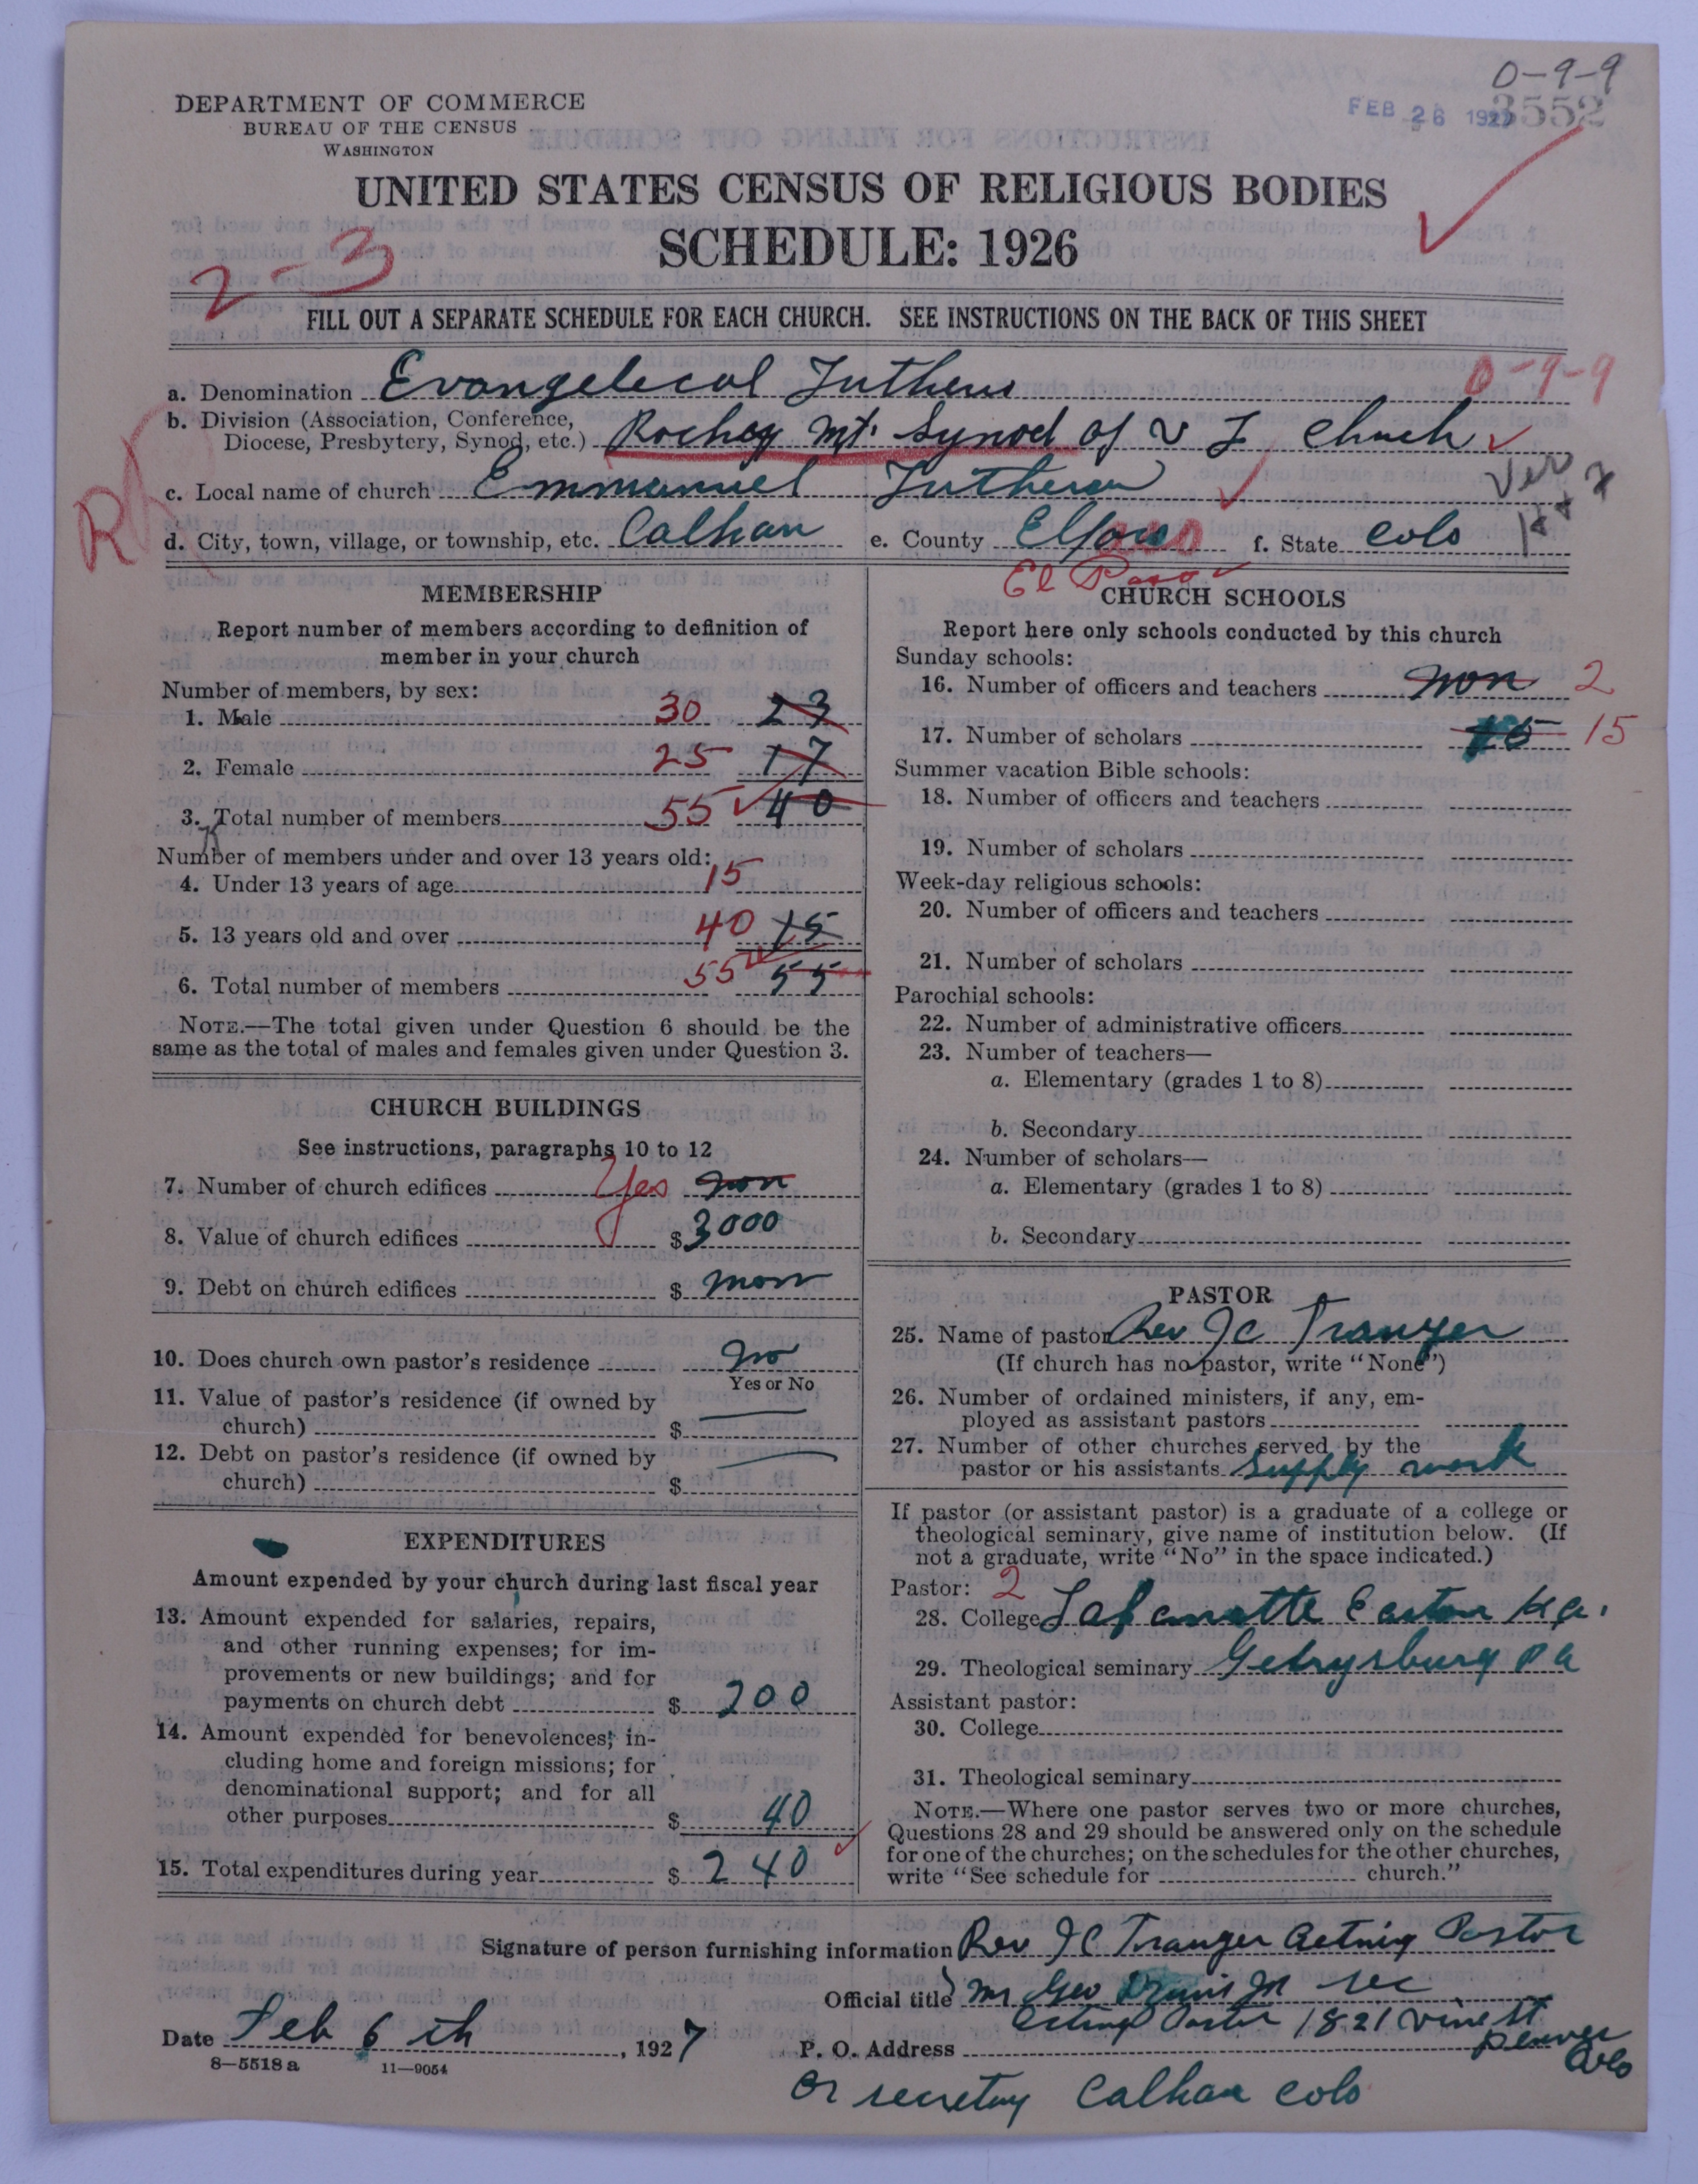 0-9-9
FEB 26 1927 3552
DEPARTMENT OF COMMERCE
BUREAU OF THE CENSUS
WASHINGTON
UNITED STATES CENSUS OF RELIGIOUS BODIES
SCHEDULE: 1926
2-3
FILL OUT A SEPARATE SCHEDULE FOR EACH CHURCH. SEE INSTRUCTIONS ON THE BACK OF THIS SHEET
0-9-9
a. Denomination Evangelecal Luthern
b. Division (Association, Conference,
Diocese, Presbytery, Synod, etc.) Rochey Mt. Synod of U L Church
c. Local name of church Emmanuel Lutheran
d. City, town, village, or township, etc. Calhan e. County f. State Colo
El Paso
MEMBERSHIP
Report number of members according to definition of
member in your church
Number of members, by sex:
1. Male 30 23
2. Female 25 17
3. Total number of members 55 40
Number of members under and over 13 years old:
4. Under 13 years of age 15
5. 13 years old and over 40 15
6. Total number of members 55 55
NOTE.—The total given under Question 6 should be the
same as the total of males and females given under Question 3.
CHURCH BUILDINGS
See instructions, paragraphs 10 to 12
7. Number of church edifices Yes non
8. Value of church edifices $ 3000
9. Debt on church edifices $ non
10. Does church own pastor's residence no
Yes or No
11. Value of pastor's residence (if owned by
church) $
12. Debt on pastor's residence (if owned by
church) $
EXPENDITURES
Amount expended by your church during last fiscal year
13. Amount expended for salaries, repairs,
and other running expenses; for im-
provements or new buildings; and for
payments on church debt $ 200
14. Amount expended for benevolences, in-
cluding home and foreign missions; for
denominational support; and for all
other purposes $ 40
15. Total expenditures during year $ 240
CHURCH SCHOOLS
Report here only schools conducted by this church
Sunday schools:
16. Number of officers and teachers non 2
17. Number of scholars 15
Summer vacation Bible schools:
18. Number of officers and teachers
19. Number of scholars
Week-day religious schools:
20. Number of officers and teachers
21. Number of scholars
Parochial schools:
22. Number of administrative officers
23. Number of teachers—
a. Elementary (grades 1 to 8)
b. Secondary
24. Number of scholars—
a. Elementary (grades 1 to 8)
b. Secondary
PASTOR
25. Name of pastor Rev J C Trauger
(If church has no pastor, write "None")
26. Number of ordained ministers, if any, em-
ployed as assistant pastors
27. Number of other churches served by the
pastor or his assistants supply work
If pastor (or assistant pastor) is a graduate of a college or
theological seminary, give name of institution below. (If
not a graduate, write "No" in the space indicated.)
Pastor: 2
28. College Lafamette Easton
29. Theological seminary Gettysburg Pa
Assistant pastor:
30. College
31. Theological seminary
NOTE.—Where one pastor serves two or more churches,
Questions 28 and 29 should be answered only on the schedule
for one of the churches; on the schedules for the other churches,
write "See schedule for church."
Signature of person furnishing information Rev J C Trauger Acting Pastor
Official title Mr Geo Jr sec
Acting Pastor 1821 Vine st
Date Feb 6 th, 1927 P. O. Address Denver
Colo
8-5518 a 11-9054
or secretary Calhan Colo